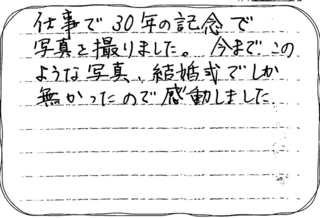 仕事で30年の記念で
写真を撮りました。今までこの
ような写真、結婚式でしか
無かったので感動しました.